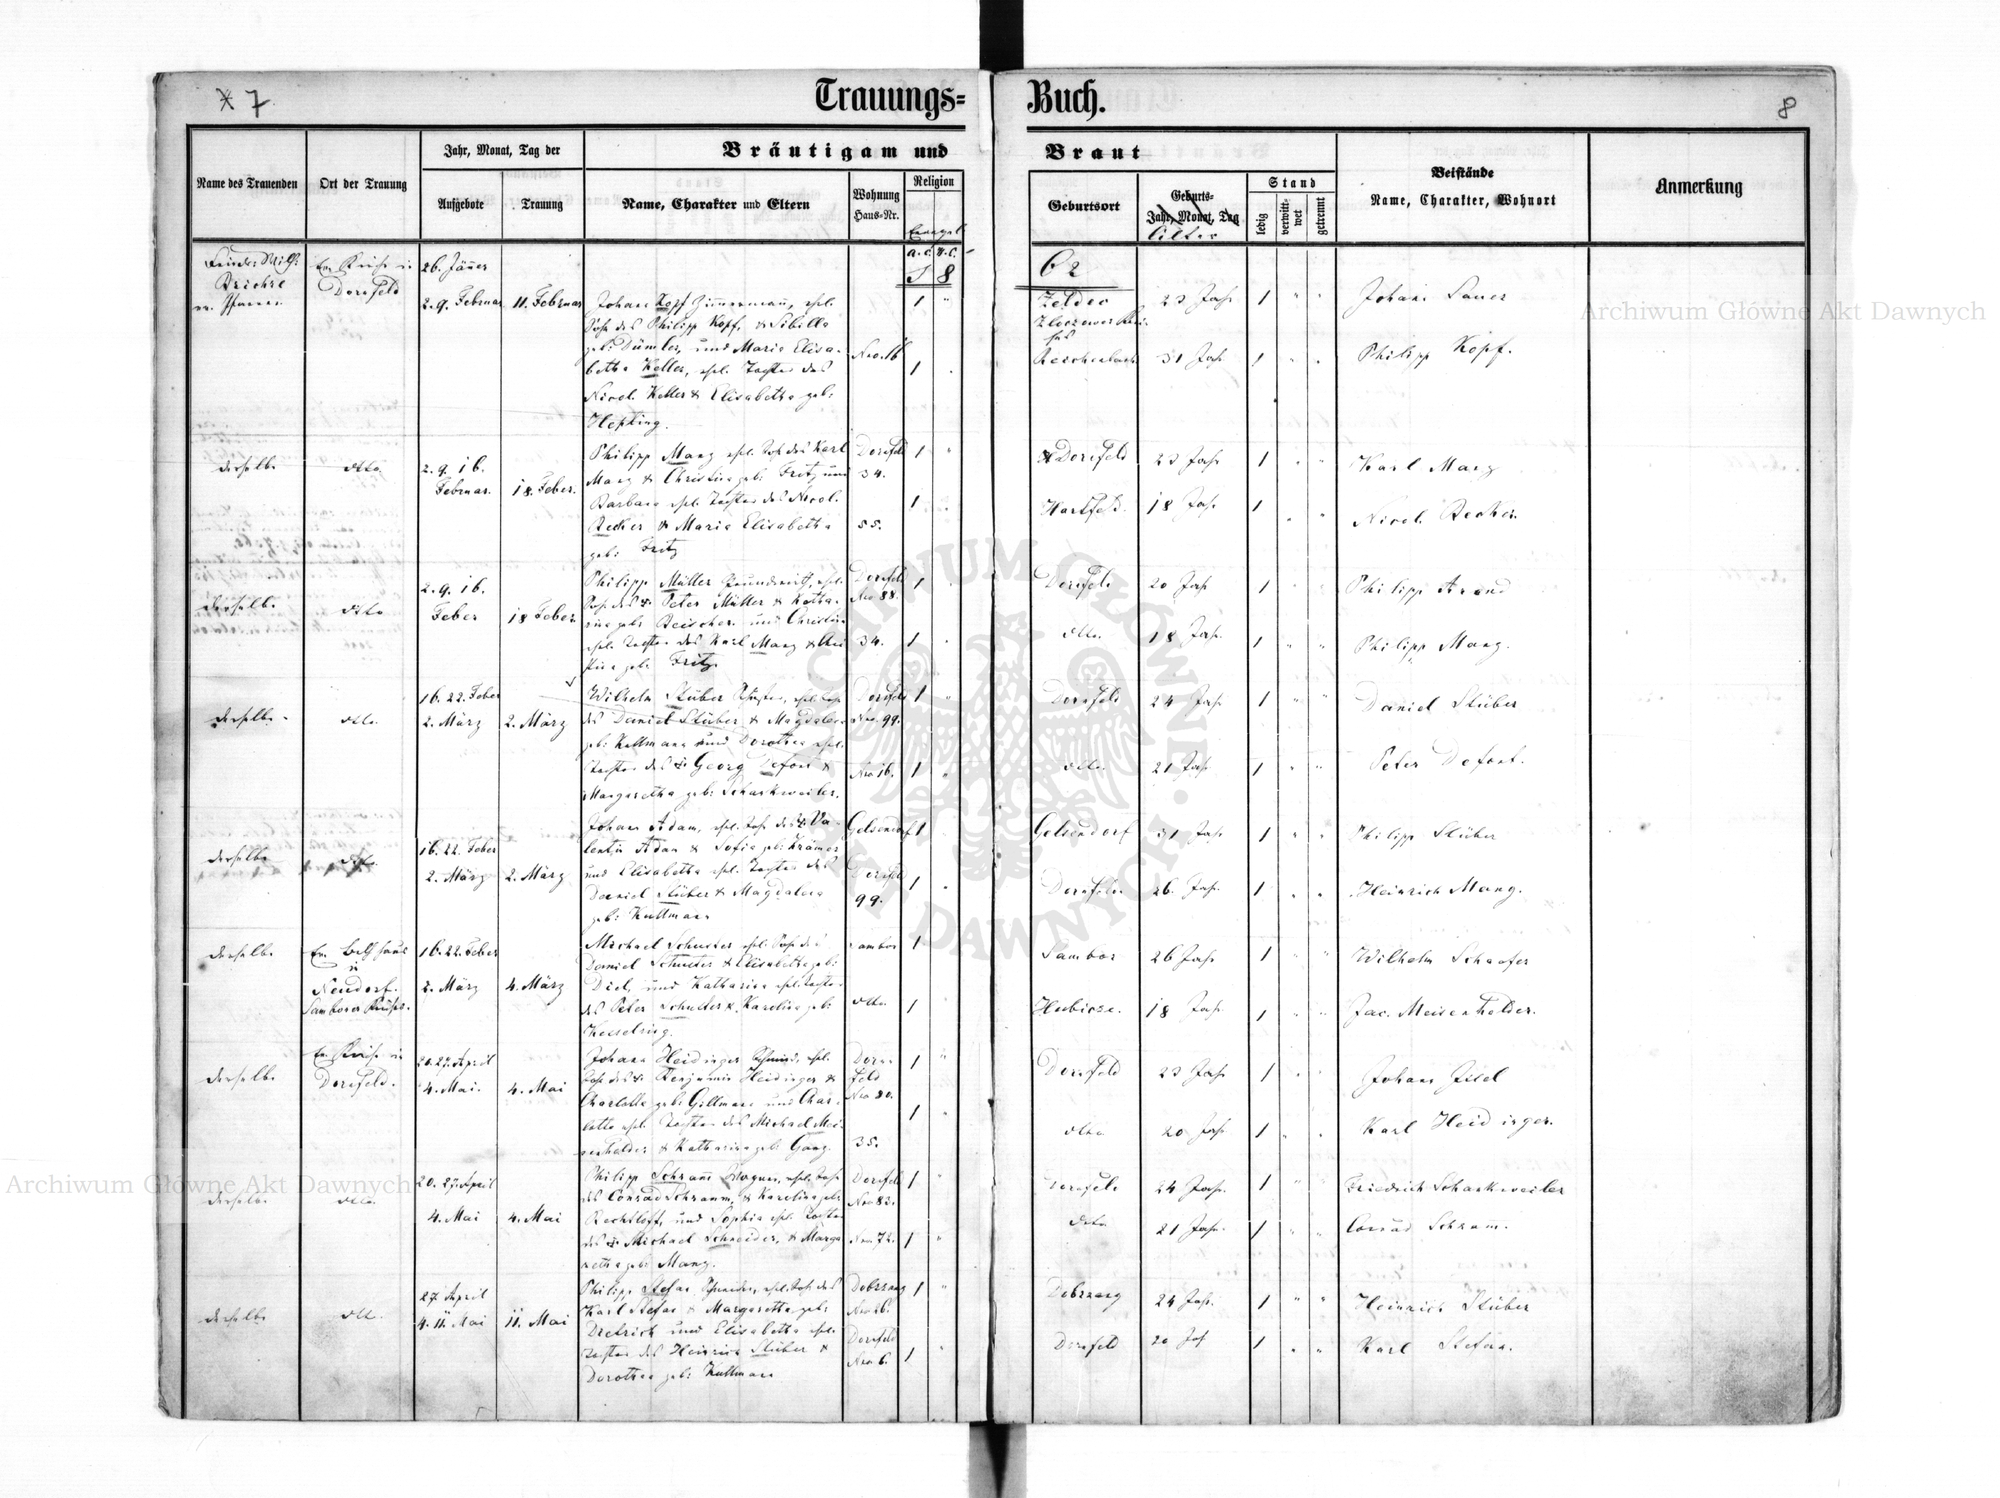 7
Trauungs=
Buch.
8
Name des Trauenden
Ort der Trauung
Jahr, Monat, Tag der
Aufgebote
Trauung
Bräutigam und
Braut
Name, Charakter und Eltern
Wohnung
Haus-Nr.
Religion
Evangel
a.c. h.c.
Geburtsort
Geburts-
Jahr, Monat, Tag
Alter
Stand
ledig
verwitt-
wet
getrennt
Beistände
Name, Charakter, Wohnort
Anmerkung
62
Dornfeld
26. Jäner
2. 9. Februar
11. Februar
Johann Kopf Zimmermann, ehel.
Sohn des Philipp Kopf, & Sibilla
geb: Dümler, und Maria Elisa-
betha Keller, ehel. Tochter des
Nicol. Keller & Elisabetha geb:
Nro. 16
1
1
23 Jahr
31 Jahr
Johann Sauer
Philipp Kopf.
derselbe
dtto.
2. 9. 16.
Februar.
18. Feber.
Philipp Mang ehel. Sohn des Karl
Mang & Christina geb: Fritz und
Barbara ehel. Tochter des Nicol.
Becker & Maria Elisabetha
geb: Fritz
Dornfeld
34.
55.
Dornfeld
Hartfeld.
23 Jahr
18 Jahr
Karl Mang
Nicol. Becker
derselbe
dtto
2. 9. 16.
Feber
18 Feber.
Philipp Müller Grundwirth, ehel.
Sohn des Peter Müller & Katha-
rina geb: Reischer und Christina
ehel. Tochter des Karl Mang & Chri
stina geb: Fritz
Dornfeld
Nro 88.
34.
Dornfeld
dtto.
20 Jahr
18 Jahr
Philipp Arand
Philipp Mang.
derselbe
dtto.
16. 22. Feber
2. März
2. März
Wilhelm Stüber
des Daniel Stüber & Magdalena
geb: Kullmann und Dorothea ehel.
Tochter des Georg Defort &
Margaretha geb: Scharkweiler.
Dornfeld
Nro. 99.
Nro 16.
Dornfeld
dtto.
24 Jahr
21 Jahr
Daniel Stüber
Peter Defort.
derselbe
dtto.
16. 22. Feber
2. März
2. März
Johann Adam, ehel. Sohn des Va-
lentin Adam & Sofia geb: Krämer
und Elisabetha ehel. Tochter des
Daniel Stüber & Magdalena
geb: Kullmann
Gelsendorf
Dornfeld
99.
Gelsendorf
Dornfeld.
31 Jahr
26. Jahr.
Philipp Stüber
Heinrich Mang.
derselbe
Ev. Bethhaus
in
Neudorf.
Samborer Kreises.
16. 22. Feber
2. März
4. März
Michael Schuster ehel. Sohn des
Daniel Schuster & Elisabetha geb:
Diel, und Katharina ehel. Tochter
des Peter Schuster & Karolina geb:
Kesselring.
Sambor
dtto.
Sambor
Hubicze.
26 Jahr
18 Jahr
Wilhelm Schaefer
Jac. Meisenhelder.
derselbe
Ev. Kirche in
Dornfeld.
20. 27. April
4. Mai.
4. Mai
Johann Heidinger Schmied, ehel.
Sohn des Benjamin Heidinger &
Charlotte geb: Gillmann und Char-
lotte ehel. Tochter des Michael Mei-
senhelder & Katharina geb: Ganz.
Dorn-
feld
Nro 80.
35.
Dornfeld
dtto
23 Jahr
20 Jahr
Karl Heidinger.
derselbe
dtto.
20. 27. April
4. Mai
4. Mai
Philipp Schramm Wagner, ehel. Sohn
des Conrad Schramm, & Karolina geb:
Bechtloff, und Sophia ehel. Tochter
des Michael Schneider, & Marga
retha geb: Mang.
Dornfeld
Nro 82.
Nro. 72.
Dornfeld
dtto
24 Jahr.
21 Jahr.
Friedrich Scharkweiler
Conrad Schram.
derselbe
dtto.
27 April
4. 11. Mai
11. Mai
Philipp Stefan Schneider, ehel. Sohn des
Karl Stefan & Margaretha geb:
Dietrich und Elisabetha ehel.
Tochter des Heinrich Stüber &
Dorothea geb: Kullmann
Dobrzany
Nro 26.
Dornfeld
Nro 6.
Dobrzany
Dornfeld
24 Jahr.
20 Jahr
Heinrich Stüber
Karl Stefan.
Archiwum Główne Akt Dawnych
Archiwum Główne Akt Dawnych
ARCHIWUM GŁÓWNE
AKT DAWNYCH